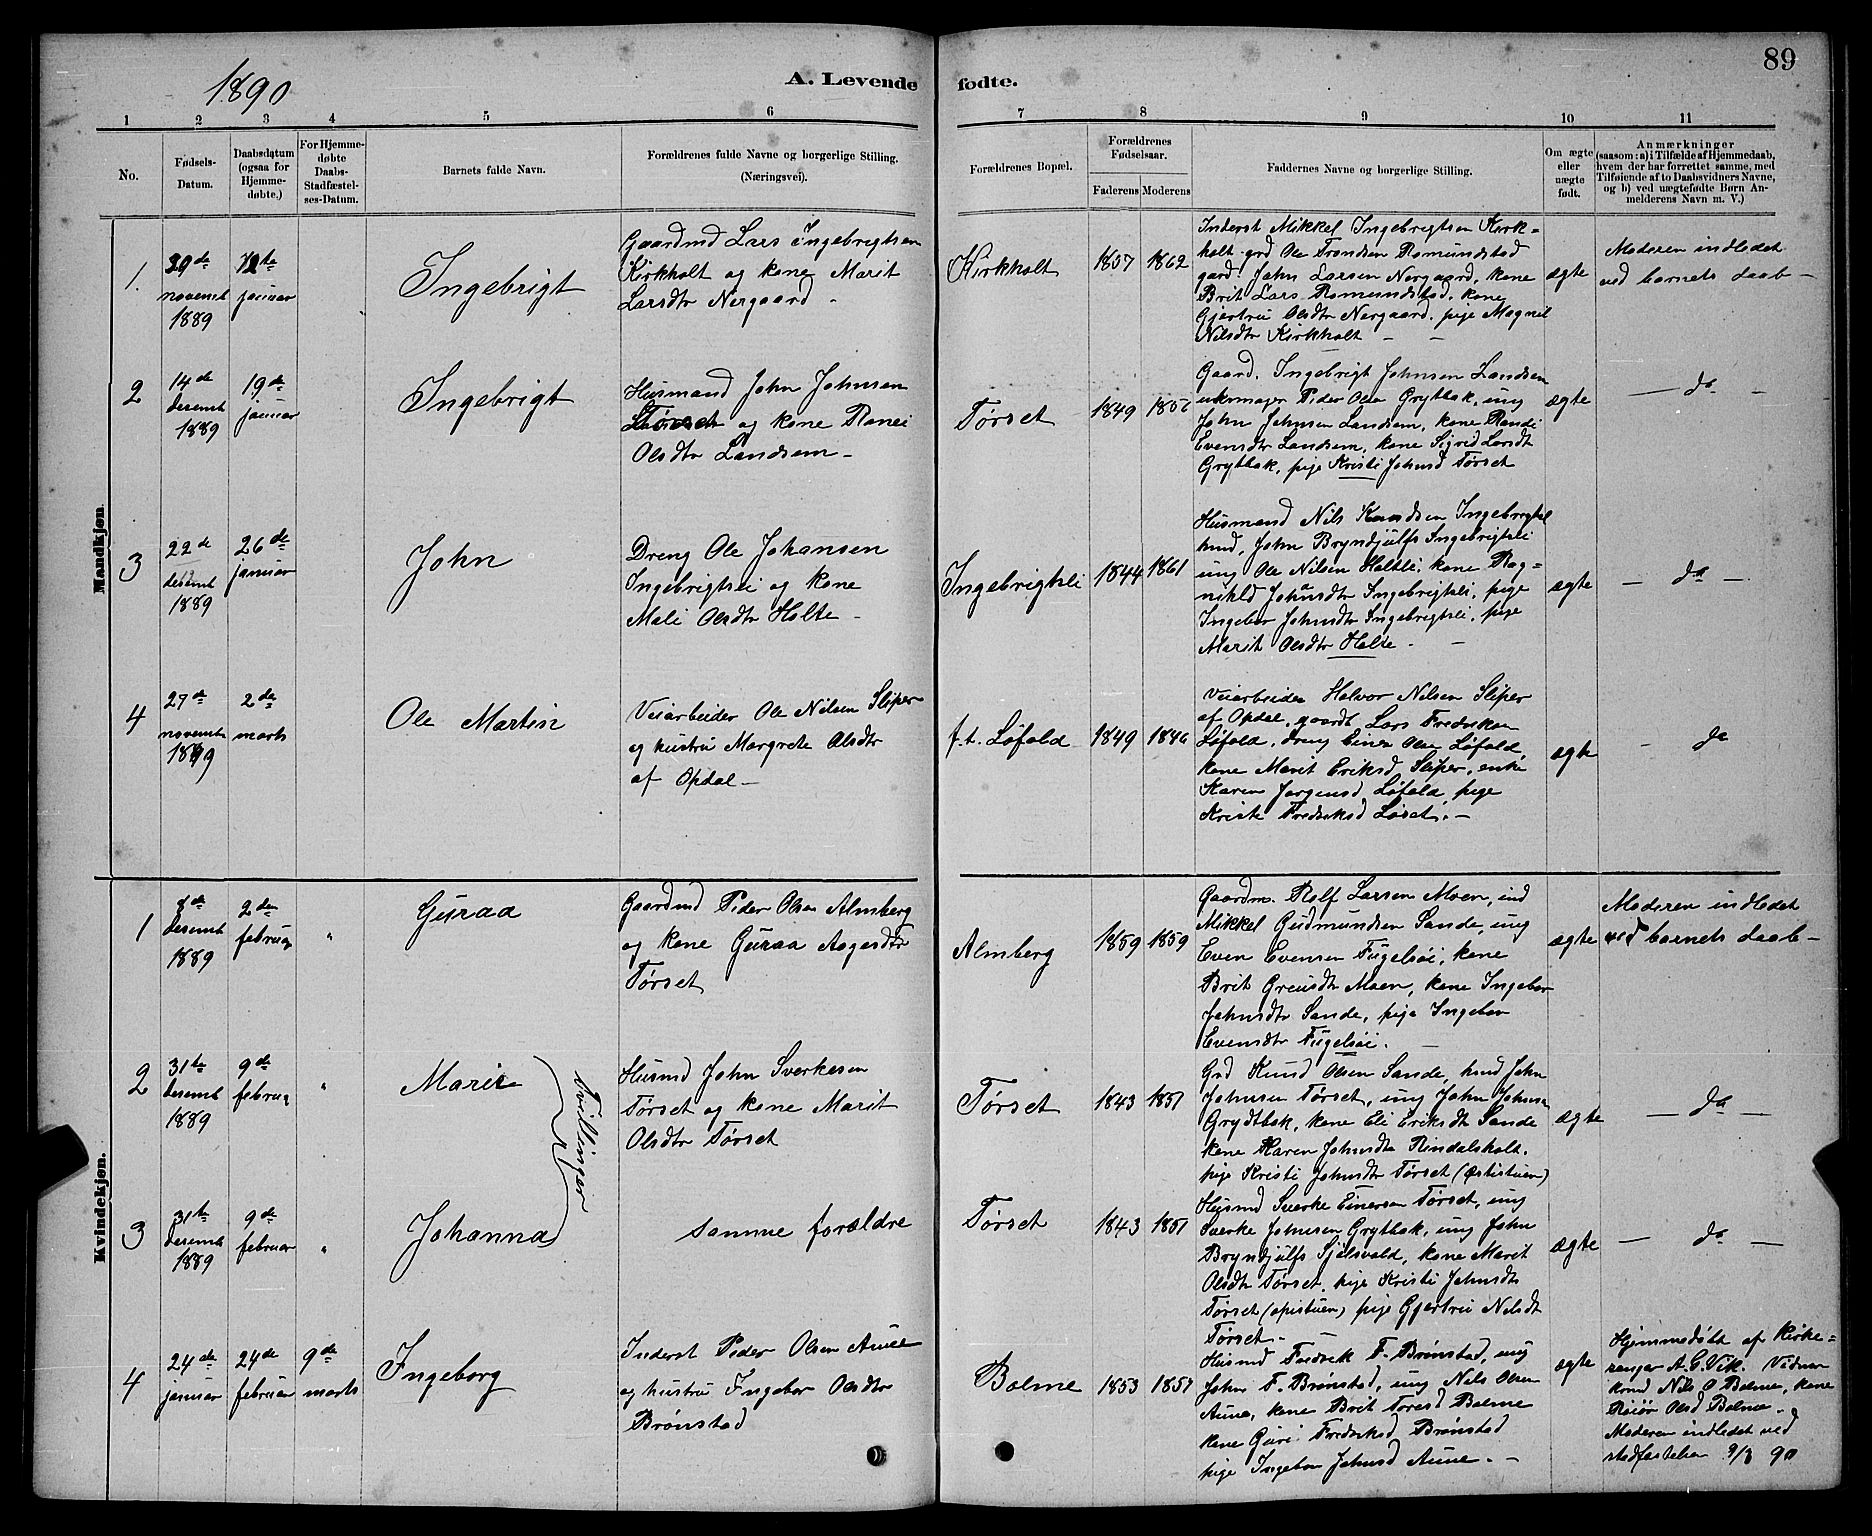 1890
A. Levende
fødte.
89
1
2
3
4
5
6
7
8
9
10
11
No.
Fødsels-
Datum.
Daabsdatum
(ogsaa for
Hjemme-
døbte.)
For Hjemme-
døbte
Daabs-
Stadfæstel-
ses-Datum.
Barnets fulde Navn.
Forældrenes fulde Navne og borgerlige Stilling.
(Næringsvei).
Forældrenes Bopæl.
Forældrenes
Fødselsaar.
Faderens
Moderens
Faddernes Navne og borgerlige Stilling.
Om ægte
eller
uægte
født.
Anmærkninger
(saasom: a) i Tilfælde af Hjemmedaab,
hvem der har forrettet samme, med
Tilføiende af to Daabsvidners Navne,
og b) ved uægtefødte Børn An-
melderens Navn m. V.)
Mandkjøn.
1.
29de
novembr
1889
12te
januar
Ingebrigt
Gaardmd Lars Ingebrigtsen
Kirkholt og kone Marit
Larsdtr Nergaard -
Kirkholt
1857
1862
Inderst Mikkel Ingebrigtsen Kirk=
holt. grd Ole Trondsen Romundstad
gard. John Larsen Nergaard, kone
Brit Lars Romundstad, kone
Gjertru Olsdtr Nergaard. pige Magnil
Nilsdtr Kirkholt - -
ægte
Moderen indledet
ved barnets daab -
2
14de
desembr
1889
19de
januar
Ingebrigt
Husmand John Johnsen
Tørset og kone Ranei
Olsdtr Landsem -
Tørset
1849
Gaard. Ingebrigt Johnsen Landsem
Peder Olsen Grytbak, ung
John Johnsen Landsem, kone Randi
Evensdtr Landsem, kone Sigrid Larsdt
Grytbak, pige Kristi Johnsd Tørset
ægte
- do -
3
22de
desembr
1889
26de
januar
John
Dreng Ole Johansen
Ingebrigtsli og kone
Mali Olsdtr Holte -
Ingebrigtsli
1844
1861
Husmand Nils Knudsen Ingebrigtsl
husd, John Bryndjulfs Ingebrigtsli
ung Ole Nilsen Holtli, kone Rag=
nikld Johansdtr Ingebrigtsli, pige
Ingebor Johnsdtr Ingebrigtsli, pige
Marit Olsdtr Holte - -
ægte
- do -
4
27de
novembr
1889
2den
marts
Ole Martin
Veiarbeider Ole Nilsen Sliper
og hustru Margrete Olsdtr
af Opdal -
f.t. Løfald
1849
1846
Veiarbeider Halvor Nilsen Sliper
af Opdal, gaardt Lars Fredriksen
Løfald, dreng Einer Olsen Løfald,
kone Marit Eriksd Sliper, enke
Karen Jorgensd Løfald, pige
Kristi Fredriksd Løset. -
ægte
- do
Kvindekjøn.
1
desembr
1889
2den
februar
"
Guraa
Gaardmd Peder Olsen Almberg
og kone Guraa Aagesdtr
Tørset
Almberg
1859
1859
Gaardm. Rolf Larsen Moen, ind
Mikkel Gudmundsen Sande, ung
Even Evensen Fugelsøi, kone
Brit Greusdtr Moen, kone Ingebor
Johnsdtr Sande, pige Ingebor
Evensdtr Fugelsøi. -
ægte
Moderen indledet
ved barnets daab -
2
31te
desembr
1889
9de
februar
"
Marit
Tvillinger
Husmd John Sverkesen
Tørset og kone Marit
Olsdtr Tørset
Tørset
1843
1851
Grd Knud Olsen Sande, husd John
Johnsen Tørset, ung John Johnsen
Grydtbak, kone Eli Eriksdt Sande
kone Karen Johnsdtr Rindalsholt.
pige Kristi Johnsdtr Tørset (Østistuen)
ægte
- do -
3
31te
desembr
1889
9de
februar
"
Johanna
samme forældre
Tørset
1843
1851
Husmd Sverke Einersen Tørset, ung
Sverke Johnsen Grytbak, ung John
Bryndjulfs Sjølsvold, kone Marit
Olsdtr Tørset, pige Kristi Johnsdtr
Tørset (opistuen) pige Gjertru Nilsdt
Tørset -
ægte
- do -
4
24de
januar
24de
februar
9de
marts
Ingeborg
Inderst Peder Olsen Aune
og hustru Ingebor Olsdtr
Brønstad
Bolme
1853
1851
Husmd Fredrik F. Brønstad, ung
John F. Brønstad, ung Nils Olsen
Aune, kone Brit Toresd Bolme
kone Guri Fredriksd Brønstad
pige Ingebor Johnsd Aune. -
ægte
Hjemmedøbt af kirke=
sanger A. G. Vik. Vidner
Nils O Bolme, kone
Olsd Bolme.
Moderen indledet ved
stadfæstelsen 9/3 90